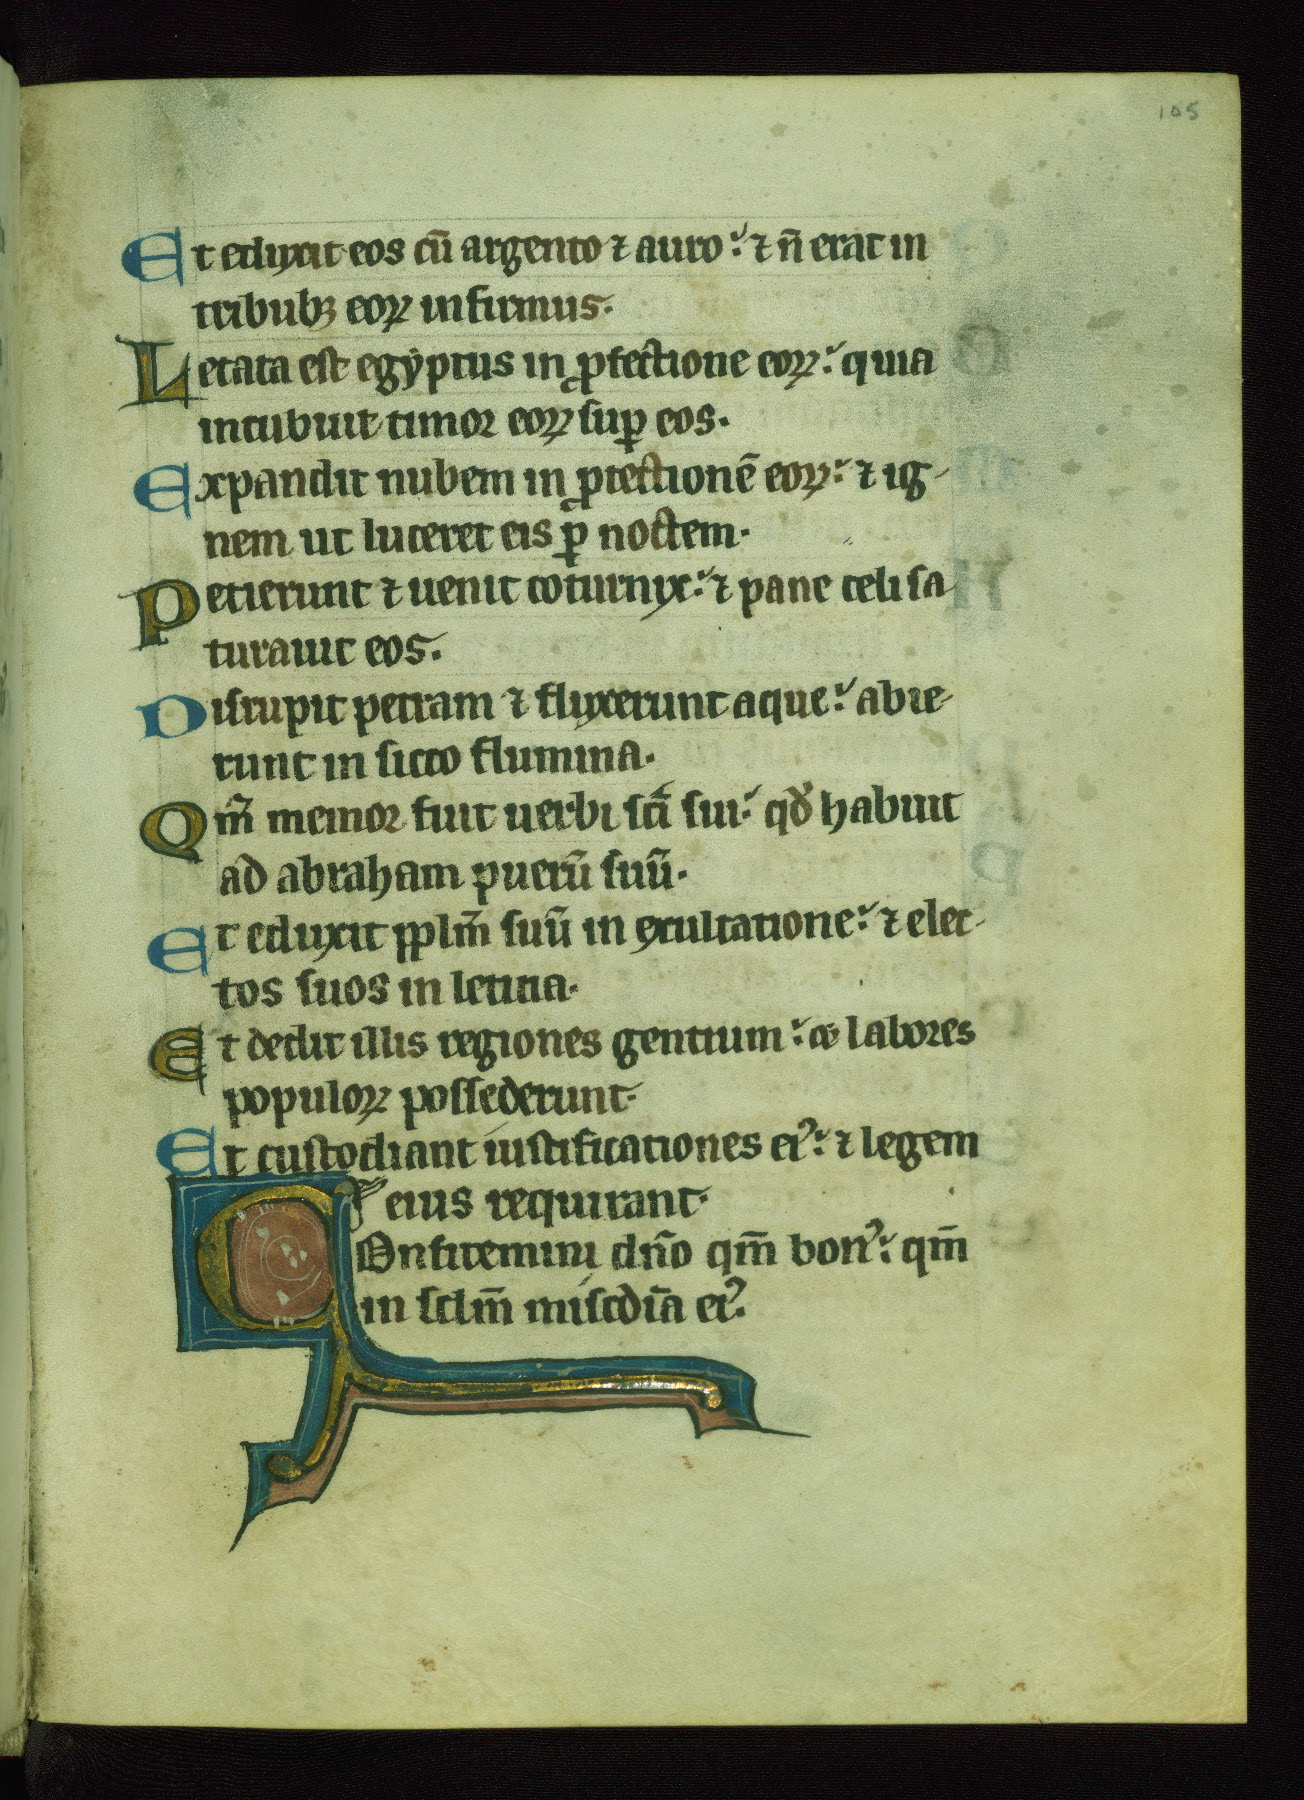 105
Et eduxit eos cū argento ⁊ auro: ⁊ n̄ erat in
tribubꝫ eoꝝ infirmus.
Letata est egyptus in ꝓfectione eoꝝ: quia
incubuit timor eoꝝ suꝑ eos.
Expandit nubem in ꝓtectionē eoꝝ: ⁊ ig-
nem ut luceret eis ꝑ noctem.
Petierunt ⁊ uenit coturnix: ⁊ pane celi sa
turauit eos.
Disrupit petram ⁊ fluxerunt aque: abie-
runt in sicco flumina.
Qm̄ memor fuit uerbi sc̄i sui: qd̄ habuit
ad abraham puerū suū.
Et eduxit pplm̄ suū in exultatione: ⁊ elec-
tos suos in leticia.
Et dedit illis regiones gentium: & labores
populoꝝ possederunt.
Et custodiant iustificationes eiꝰ: ⁊ legem
eius requirant.
COnfitemini dn̄o qm̄ bonꝰ: qm̄
in sclm̄ misc̄dia eiꝰ.